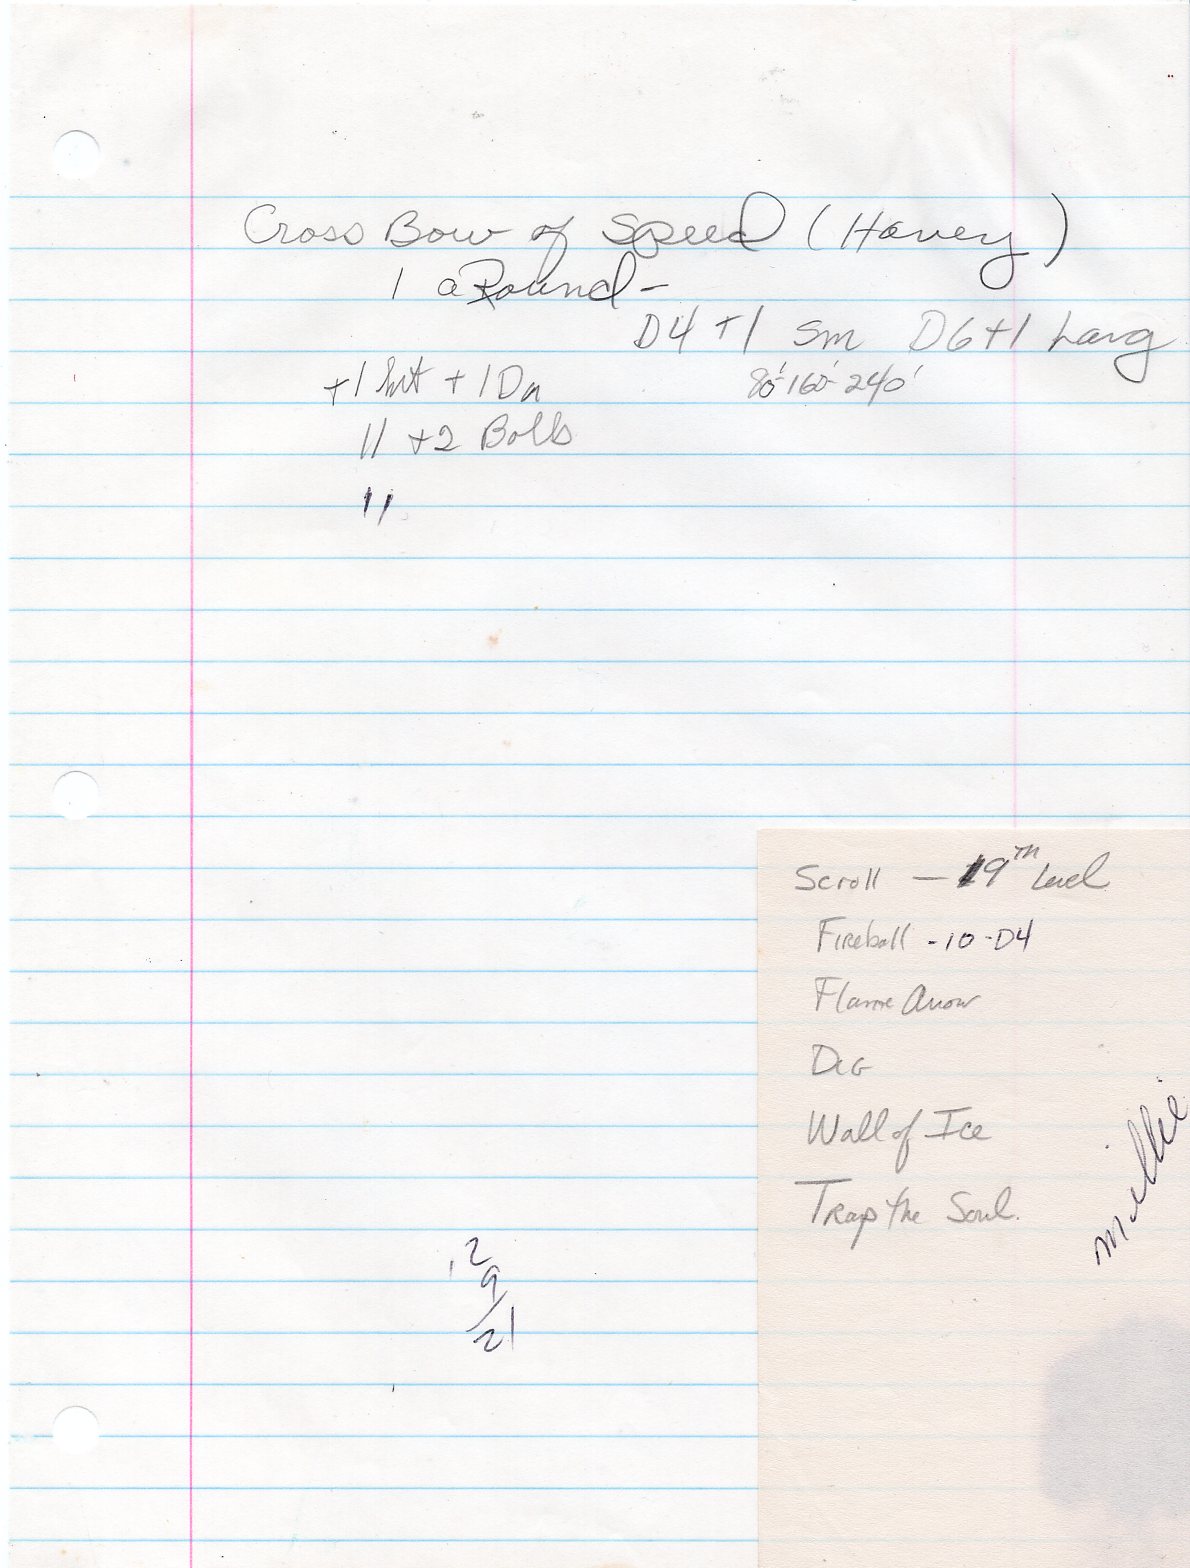 Cross Bow of Speed (Havey)
1 a Round-
D4 +1 Sm D6+1 Larg
+1 hit +1 Da
80'-160'-240'
11 +2 Bolts
11
Scroll — 19TH Level
Fireball -10-D4
Flame Arrow
DIG
Wall of Ice
Trap the Soul.
millie
12
9
21